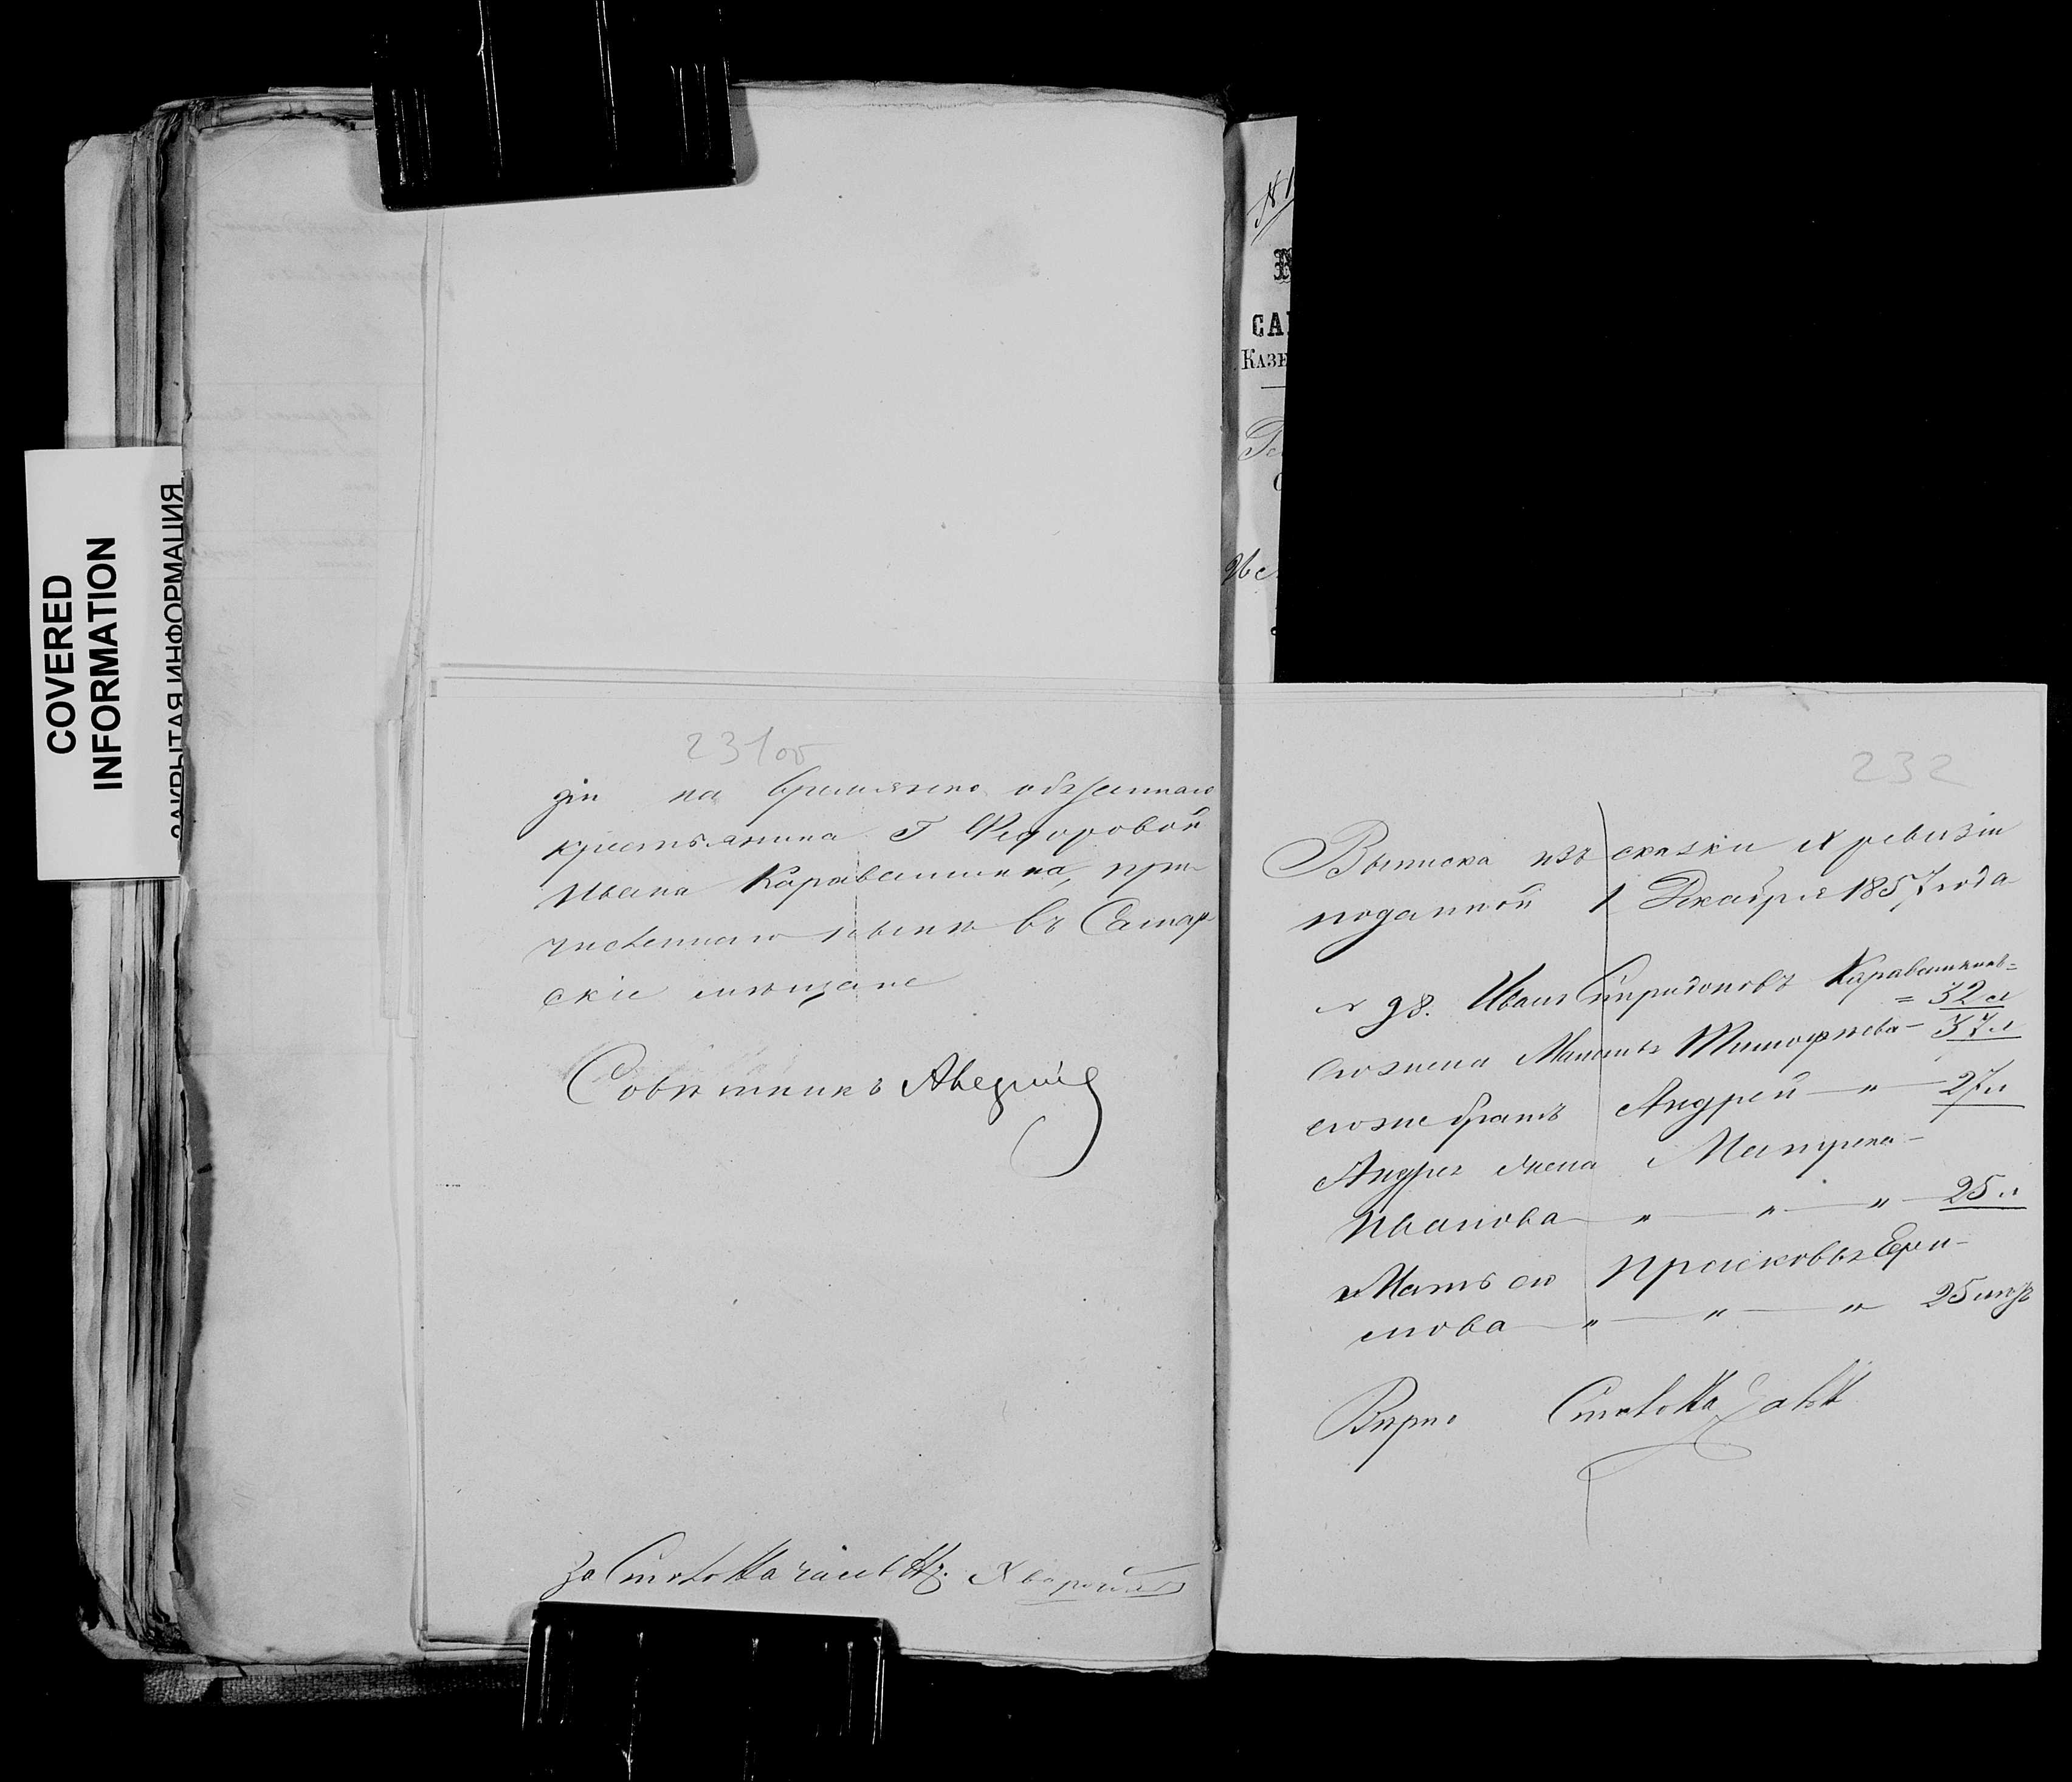 COVERED
INFORMATION
ЗАКРЫТАЯ ИНФОРМАЦИЯ
231об
зіи на временно обязаннаго
крестьянина Г Федоровой
Ивана Каравашкина, при
численнаго нынѣ въ Самар
скіе мѣщане
Совѣтникъ
За Столоначальн.
№ 1
СА
КАЗЕ
232
Выписка изъ сказки X ревизіи
поданной 1 Декабря 1857 года
№ 98. Иванъ Спиридоновъ Каравашкинъ =
= 32 л
егожена Тимофѣева – 37 л
егоже братъ Андрей — „ — 27 л
Андрея жена Матрена –
Иванова — „ — „ — „ — 25 л
Мать его Прасковья Ефи–
мова — „ — „ — „ 25
Вѣрно Столонач